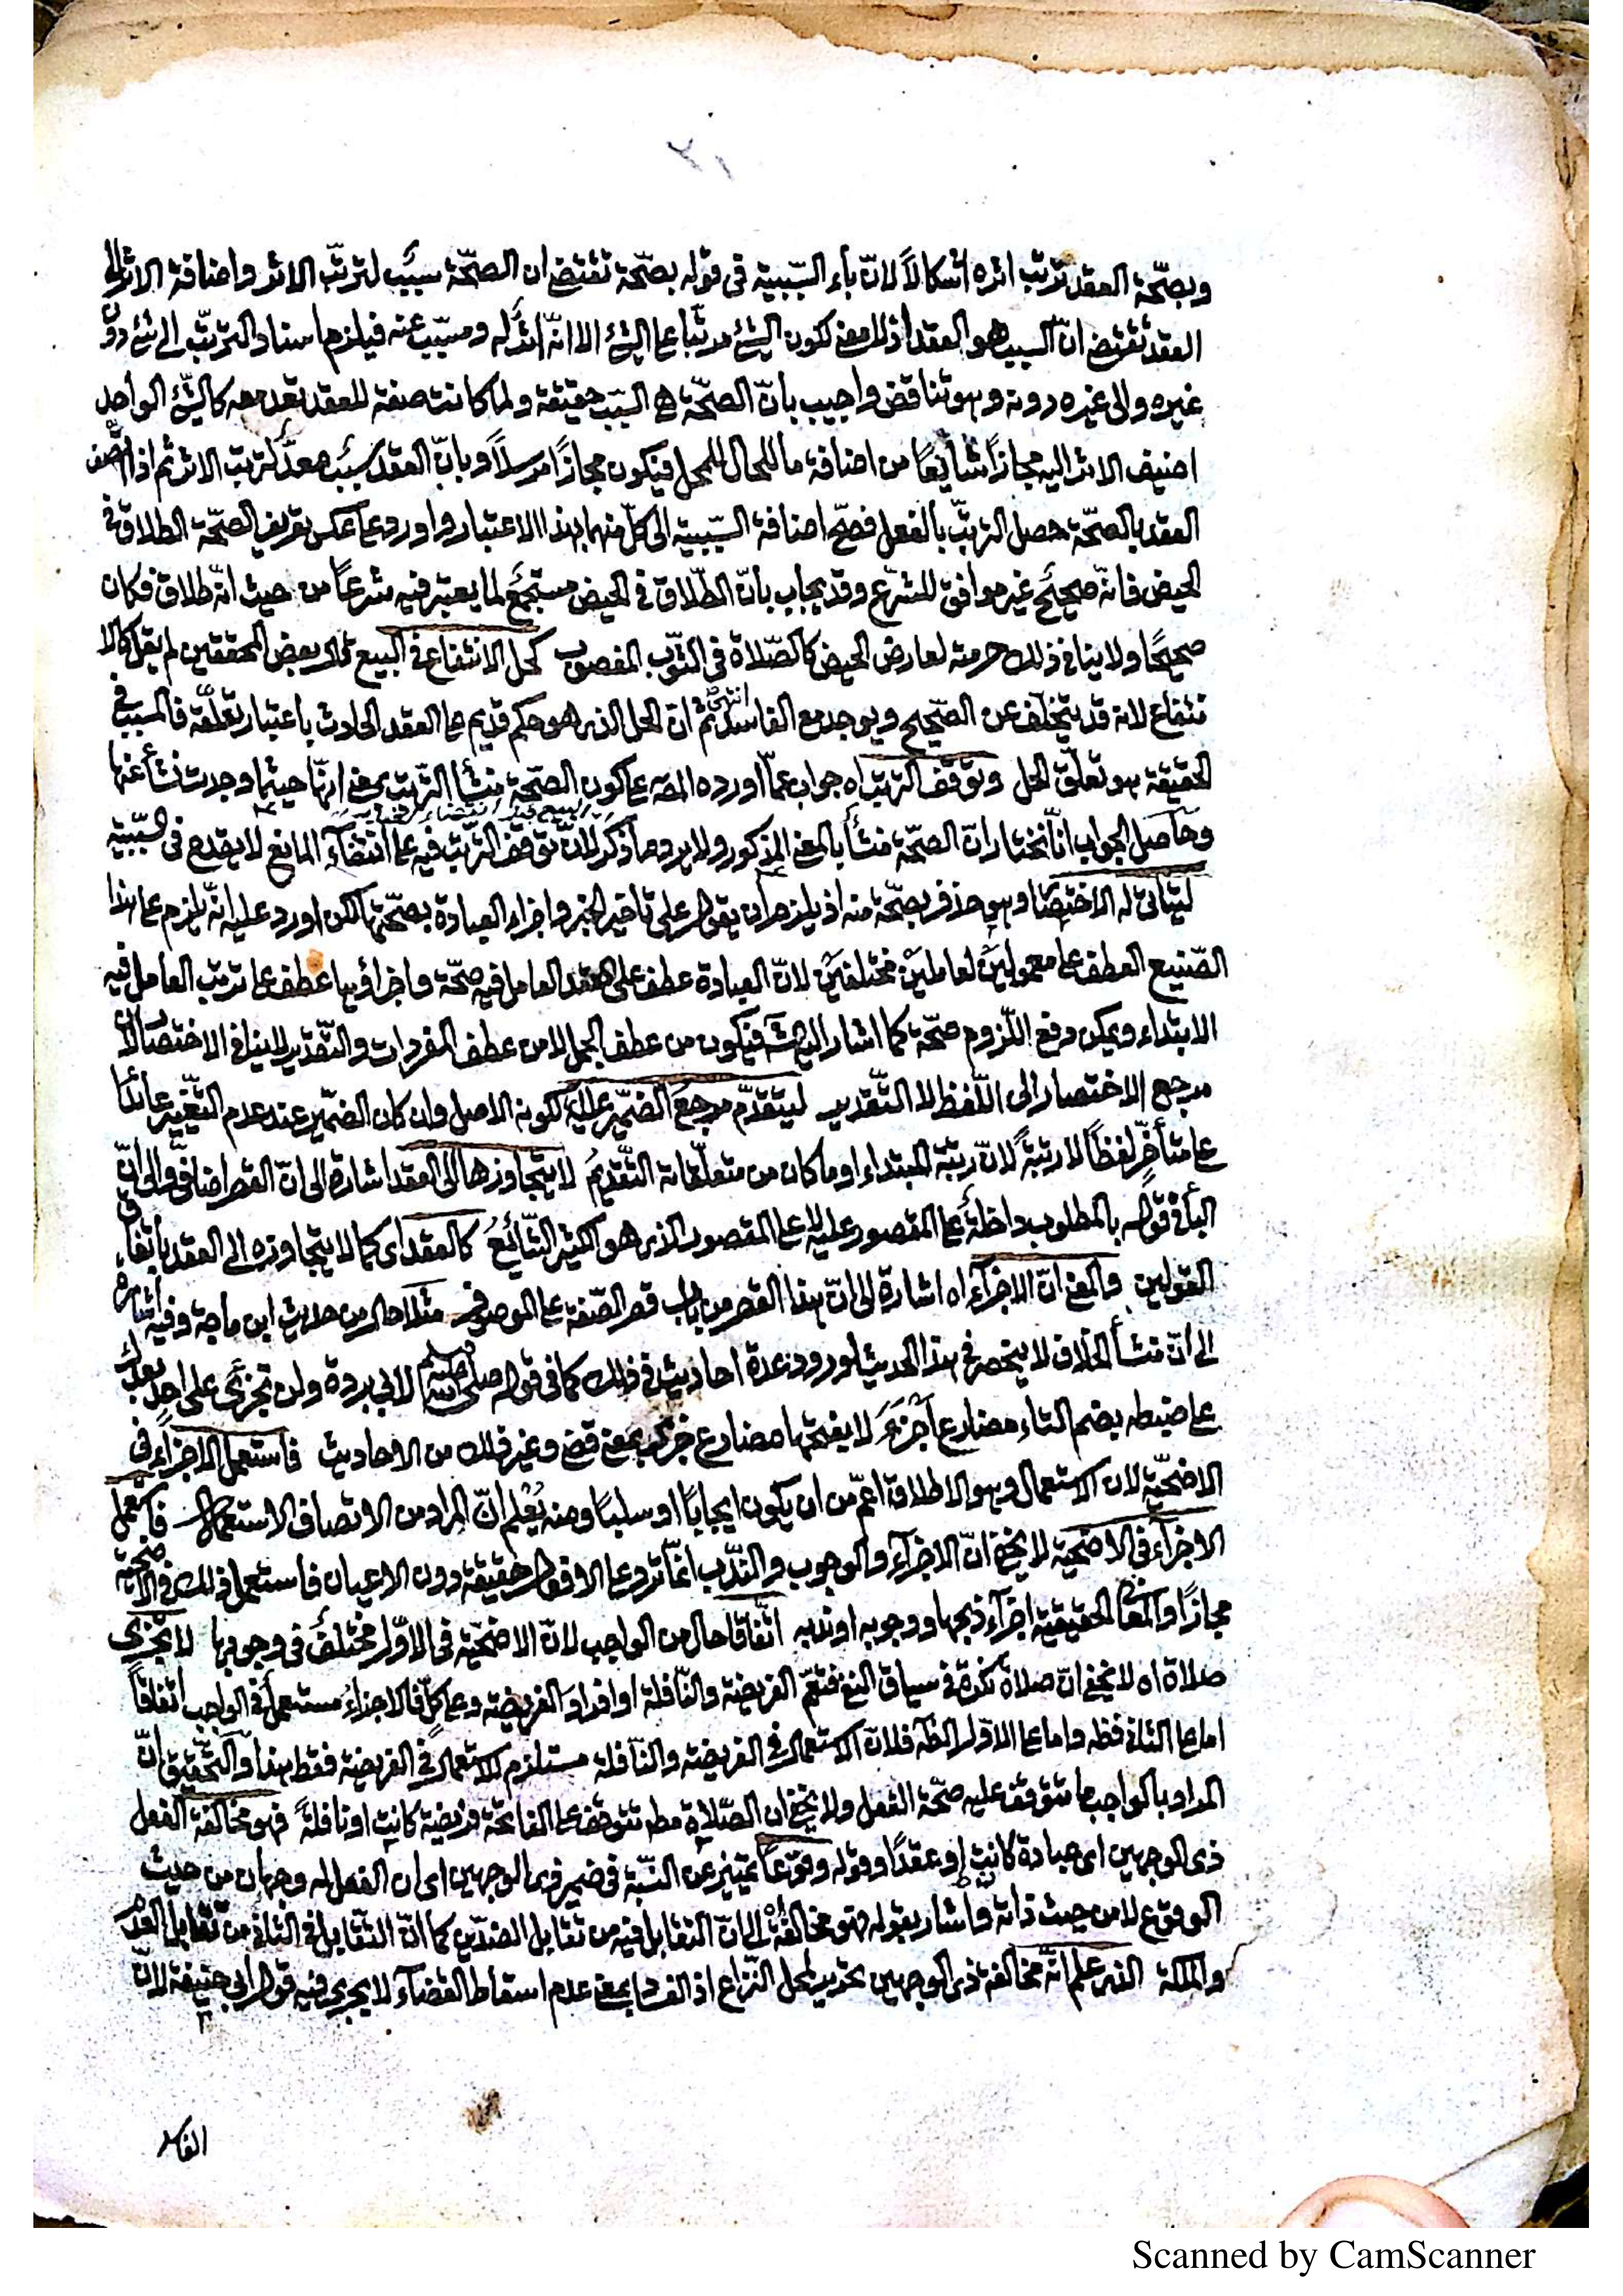 ١٢
وبصّحة العقد ترتب اثره اشكالاً لانّ باء السّببية فى قوله بصّحة تقتضى ان الصحّة سبب لترتّب الاثر واضافة الاثر الى
العقد تقتضى انّ السبب هو العقد اذ لا معنى لكون الشئ مرتّبا على الشئ الا انّه اثر له ومسبّب عنه فيلزم اسناد الترتّب الى شئ دون
غيره والى غيره دونه وهو تناقض واجيب بانّ الصّحّة هى السّبب حقيقة ولما كانت صفة للعقد تعد معه كالشّئ الواحد
اضيف الاثر اليه مجازاً شايعًا من اضافة ما للحال للمحل فيكون مجازًا مرسلاً وبانّ العقد سبب معدّ لترتب الاثر ثم اذا اتّصف
العقد بالصّحّة حصل الترتّب بالفعل فصحّ اضافة السّببية الى كلّ منهما بهذا الاعتبار واورد على عكس تعريف الصّحّة الطلاق فى
الحيض فانّه صحيح غير موافق للشّرع وقد يجاب بانّ الطّلاق فى الحيض مستجمع لما يعتبر فيه شرعاً من حيث انّه طلاق فكان
صحيحًا ولا ينافى ذلك حرمته لعارض الحيض كالصّلاة فى الثّوب المغصوب كحل الانتفاع فى البيع قال بعض المحققين لم يقل كالا
نتفاع لانه قد يتخلّف عن الصّحيح ويوجد مع الفاسد انتهى ثم انّ الحل الذى هو حكم قديم على العقد الحادث باعتبار تعلّقه فالمسبب فى
الحقيقة هو تعلّق الحل وتوقّف الترتب اه جواب عمّا اورده المص على كون الصّحّة منشأ التّرتب بمعنى انّها حيثما وجدت نشأ عنها
وحاصل الجواب انّا نختار انّ الصّحّة منشأ بالمعنى المذكور ولا يرد ما ذكر لانّ توقّف الترتّب فيه على انتفاء المانع لا يقدح فى السّببيّة
ليتأتى له الاختصار وهو حذف بصحّة منه اذ يلزم ان يقول على تاخير الخبر واجزاء العبادة بصحّتها لكن اورد عليه انّه يلزم على هذا
الصّنيع العطف على معمولين لعاملين مختلفين لانّ العبادة عطف على العقد العامل فيه صحّة واجزاؤها عطف على ترتب العامل فيه
الابتداء ويمكن دفع اللّزوم صحّة كما اشار اليه الش فيكون من عطف الجمل لا من عطف المفردات والتّقدير لا ينافى الاختصار لانّ
مرجع الاختصار الى اللّفظ لا التّقدير ليتقدّم مرجع الضّمير عليه لكونه الاصل وان كان الضّمير عند عدم التّغيير عائدًا
على متأخّر لفظاً لا رتبةً لانّ رتبة المبتداء وما كان من متعلّقاته التّقديم لا يتجاوزها الى العقد اشارة الى انّ القصر اضافىّ والى انّ
الباء فى قوله بالمطلوب داخلة على المقصور عليه لا على المقصور الذى هو الكثير الشّائع كالعقد اى كما لا يتجاوزه الى العقد باتّفاق
القولين والمعنى انّ الاجزاء اه اشارة الى انّ هذا القصر من باب قصر الصّفة على الموصوف مثلا حال من حديث ابن ماجة وفيه اشارة
الى انّ منشأ الخلاف لا ينحصر فى هذا الحديث لورود عدة احاديث فى ذلك كما فى قوله صلى الله عليه وسلم لابى بردة ولن تجزئ على احد بعدك
على ضبطه بضم التاء مضارع اجزء لا بفتحها مضارع جزى بمعنى قضى وغير ذلك من الاحاديث فاستعمل الاجزاء فى
الاضحيّة لان الاستعمال وهو الاطلاق اعمّ من ان يكون ايجابًا او سلبًا ومنه يُعْلم انّ المراد من الاتصاف الاستعمال فاستعمل
الاجزاء فى الاضحيّة لا يخفى انّ الاجزاء والوجوب والنّدب انّما ترد على الافعال حقيقة دون الاعيان فاستعمل ذلك فى الاضحيّة
مجازًا والمعانى الحقيقية اجزاء ذبحها ووجوبه او ندبه اتّفاقا حال من الواجب لانّ الاضحيّة فى الاوّل مختلف فى وجوبها لا تجزى
صلاة اه لا يخفى انّ صلاة نكرة فى سياق النفى فتعمّ الفريضة والنّافلة او افراد الفريضة وعلى كلّ فالاجزاء مستعمل فى الواجب اتفاقاً
اما على الثانى فظه واما على الاوّل الظّ فلانّ الاستعمال فى الفريضة والنّافلة مستلزم للاستعمال فى الفريضة فقط هذا والتّحقيق انّ
المراد بالواجب ما تتوقّف عليه صحّة الفعل ولا يخفى ان الصّلاة مط تتوقف على الفاتحة فريضة كانت او نافلةً فهو مخالفة الفعل
ذى الوجهين اى عبادة كانت او عقدًا وقوله وقوعًا تمييز عن النّسبة فى ضمير ذى الوجهين اى ان الفعل له وجهان من حيث
الوقوع لا من حيث ذاته واشار بقوله فهو مخالفة الى انّ التقابل فيه من تقابل الضّدّين كما انّ التّقابل فى الثانى من تقابل العدم
والملكة الذى علم انّه مخالفة ذى الوجهين تحرير لمحل النّزاع اذ الفساد بمعنى عدم اسقاط القضاء لا يجرى فيه قول ابى حنيفة لانّ
الفاسد
Scanned by CamScanner